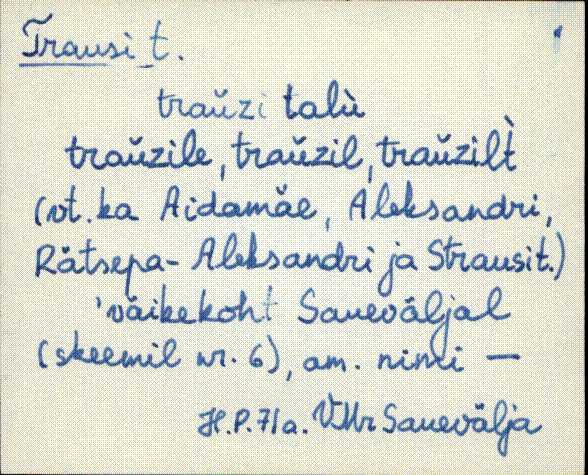 Trausi_t.
traŭzi talù
traŭzile, traŭzil, traŭzilt̀
(vt. ka Aidamäe, Aleksandri,
Rätsepa-Aleksandri ja Strausit.)
'väikekoht Saueväljal
(skeemil nr. 6), am. nimi —
H.P. 71a. VMr Sauevälja